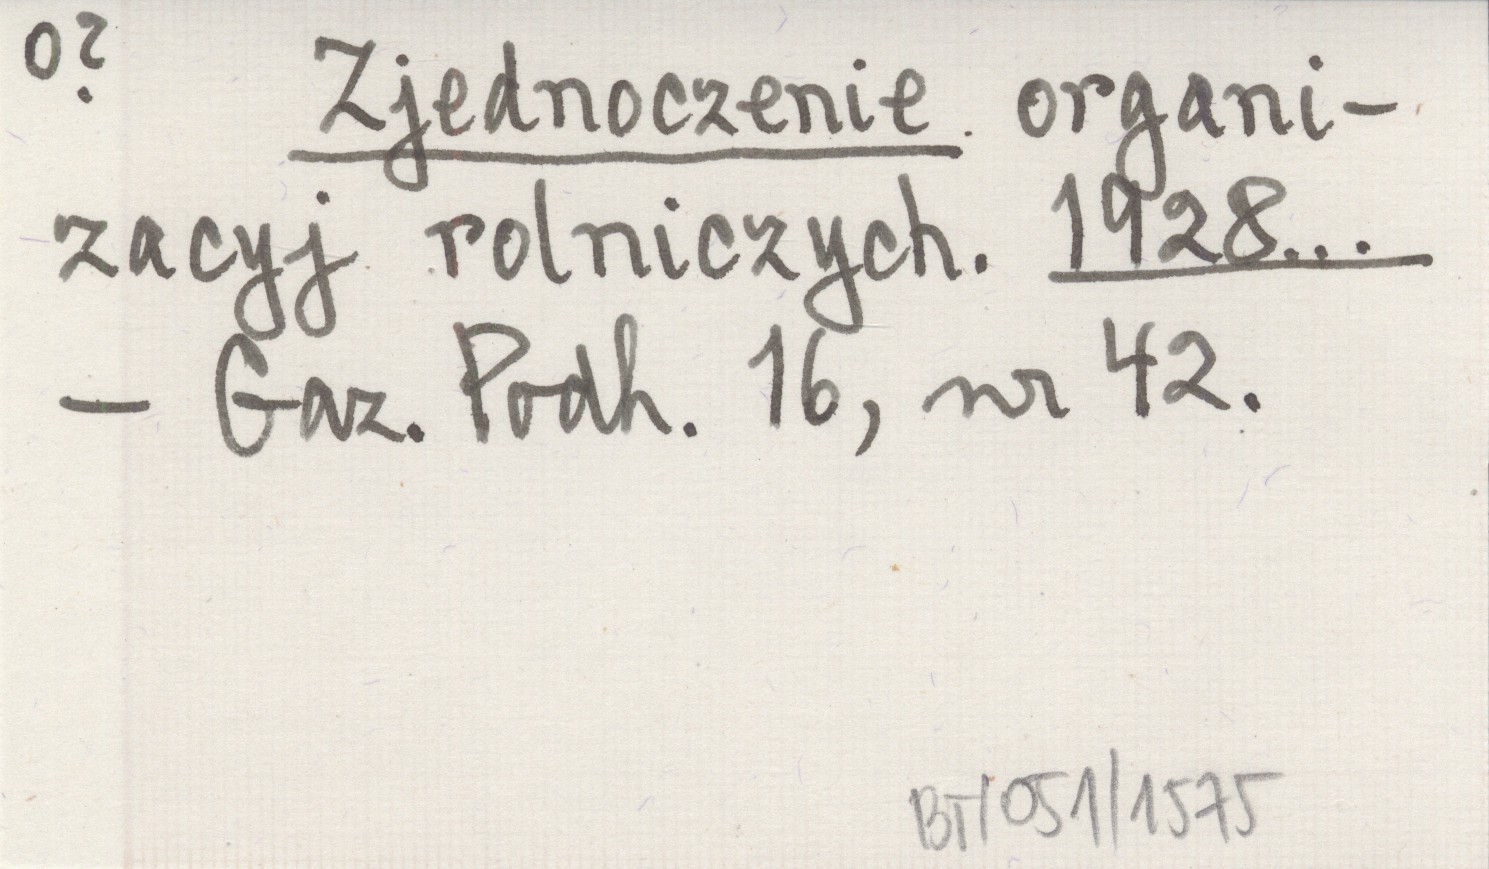 o?
Zjednoczenie organi-
zacyj rolniczych. 1928...
— Gaz. Podh. 16, nr 42.
BT/051/1575